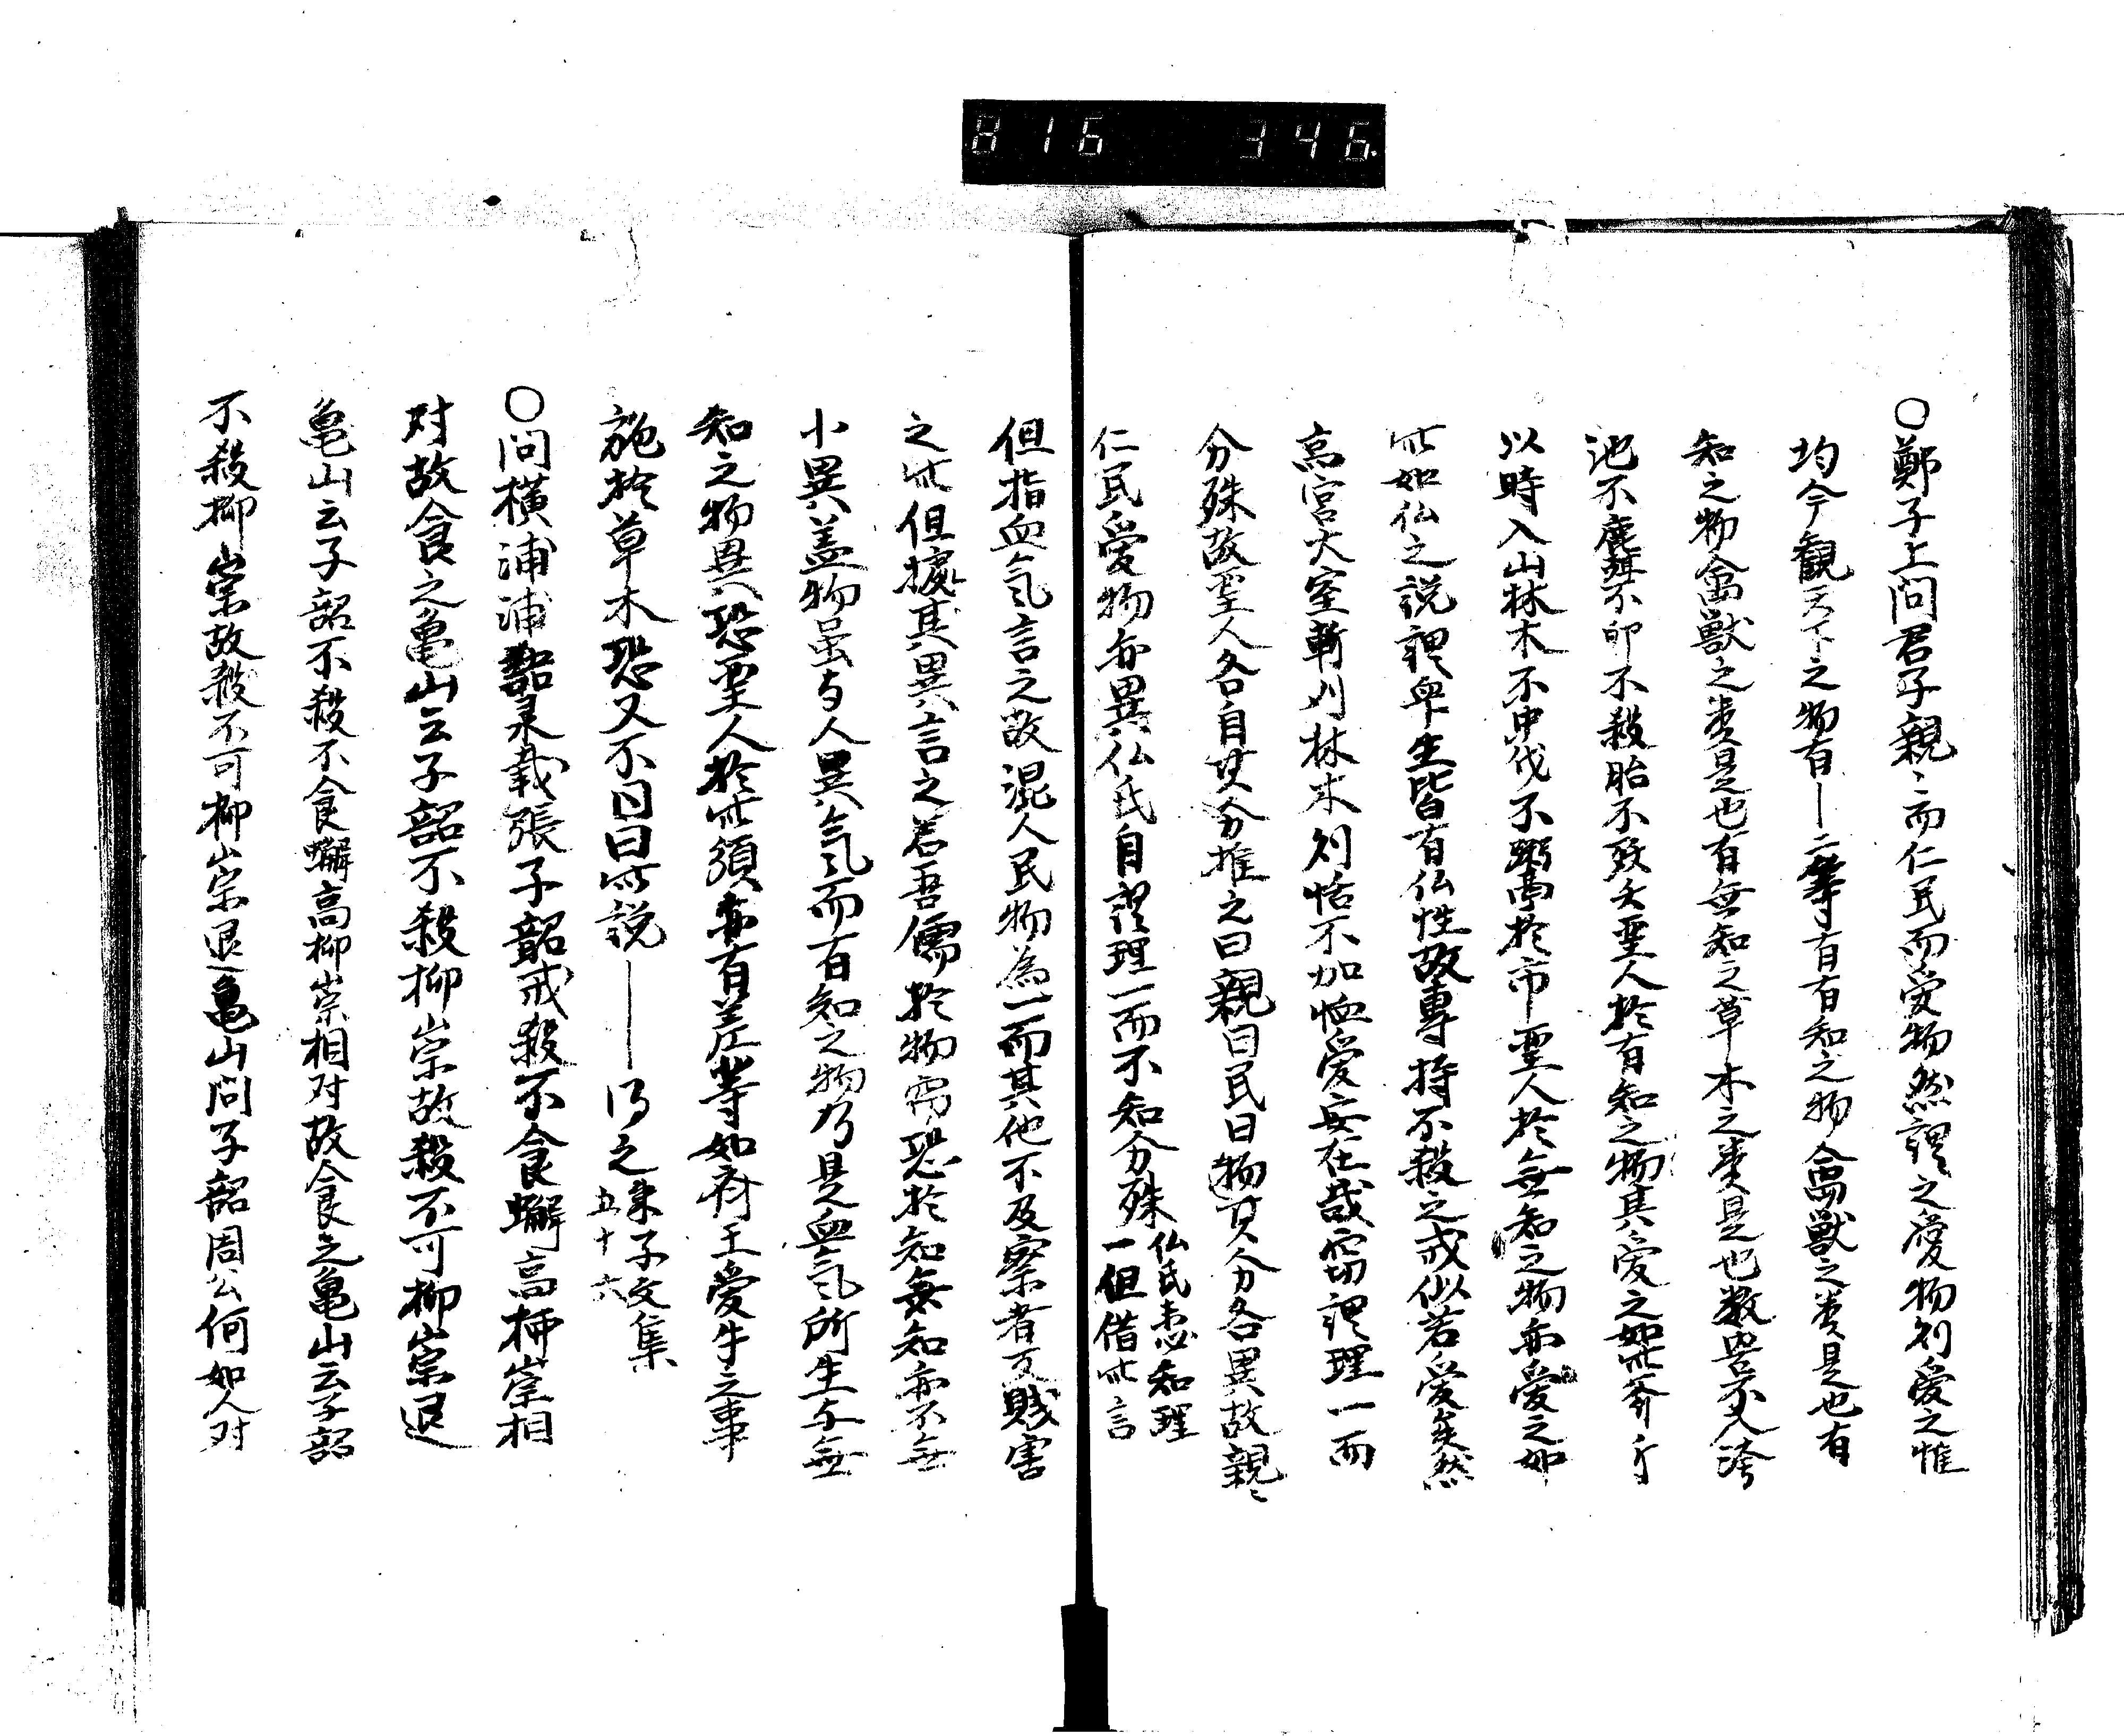 816 346
○鄭子上問君子親〻而仁民而愛物然謂之愛物則愛之惟
均今觀天下之物有｜二等有有知之物禽獸之類是也有
知之物禽獸之類是也有無知之草木之類是也數罟不入洿
池不麛不卵不殺胎不殀夭聖人於有知之物其愛之如此斧斤
以時入山林木不中伐不鬻於市聖人於無知之物亦愛之如
此如仏之説謂衆生皆有仏性故専持不殺之戒似若愛矣然
高宮大室斬刈林木則恬不加恤愛安在哉窃謂理一而
分殊故聖人各自其分推之曰親曰民曰物其分各異故親〻
仁民愛物亦異仏氏自謂理一而不知分殊
仏氏未必知理
一但借此言
但指血氣言之故混人民物為一而其他不及察者反賊害
之此但據其異言之若吾儒於物窃恐於知無知亦不無
小異蓋物虽与人異氣而有知之物乃是血氣所生与無
知之物異恐聖人於此須亦有差等如齊王愛牛之事
施於草木恐又不同曰此説｜得之
朱子文集
五十六
○問横浦浦語录載張子韶戒殺不食蠏高抑崇相
对故食之亀山云子韶不殺抑崇故殺不可抑崇退
亀山云子韶不殺不食蠏高抑崇相对故食之亀山云子韶
不殺抑崇故殺不可抑崇退亀山問子韶周公何如人对